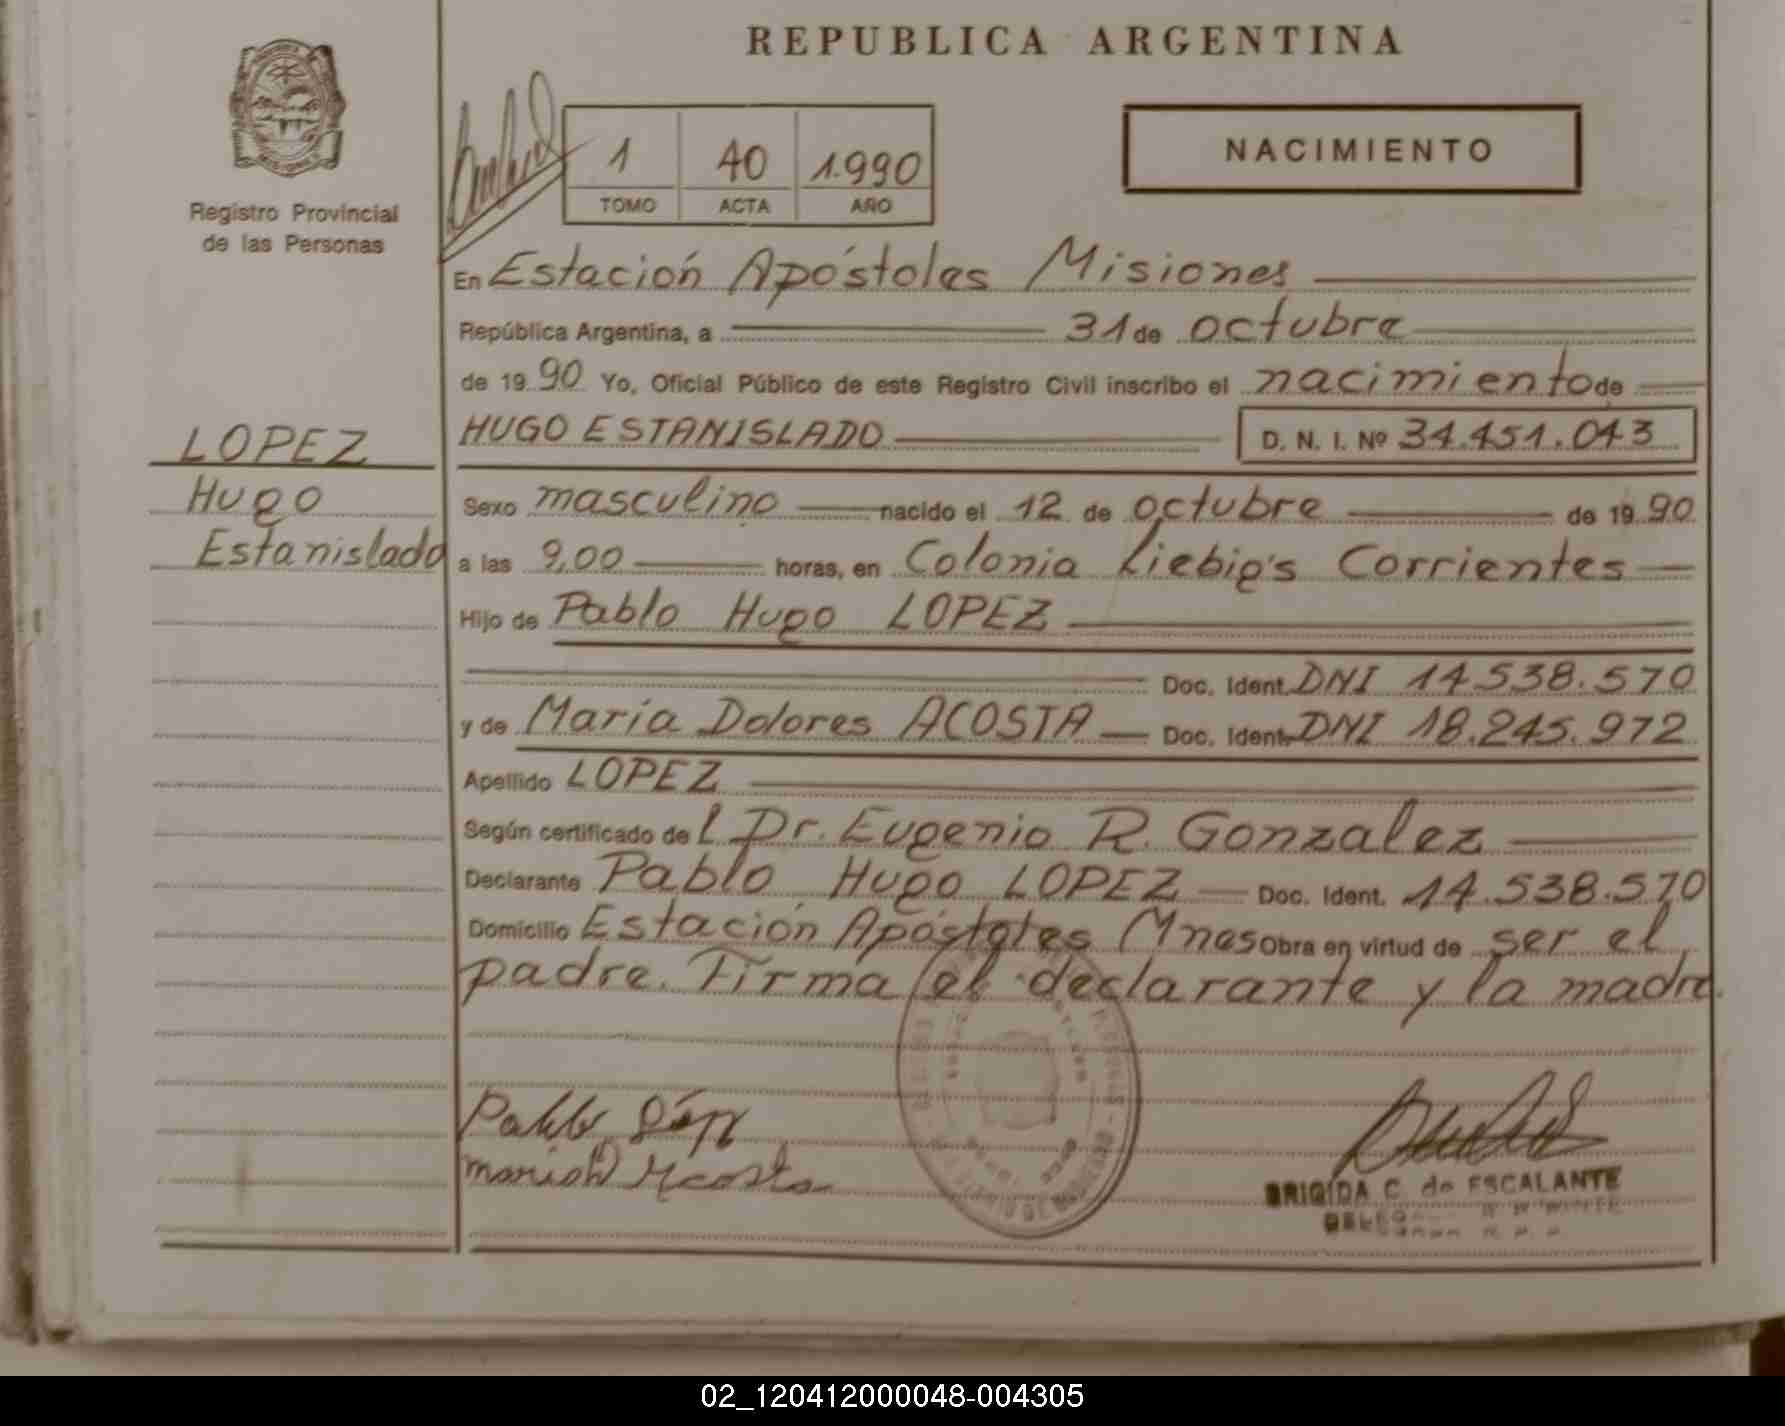 REPUBLICA ARGENTINA
NACIMIENTO
1 40 1.990
TOMO ACTA AÑO
Registro Provincial
de las Personas
En Estación Apóstoles Misiones
República Argentina, a 31 de octubre
de 19 90 Yo, Oficial Público de este Registro Civil inscribo el nacimiento de
LOPEZ
HUGO ESTANISLADO D. N. I. Nº 34.451.043
Hugo
Sexo masculino nacido el 12 de octubre de 19 90
Estanislado
a las 9,00 horas, en Colonia Liebig's Corrientes
Hijo de Pablo Hugo LOPEZ
Doc. Ident. DNI 14.538.570
y de María Dolores ACOSTA Doc. Ident. DNI 18.245.972
Apellido LOPEZ
Según certificado de l Dr. Eugenio R. Gonzalez
Declarante Pablo Hugo LOPEZ Doc. Ident. 14.538.570
Domicilio Estación Apóstoles Mnes Obra en virtud de ser el
padre. Firma el declarante y la madre.
Pablo
Acosta
BRIGIDA C. de ESCALANTE
02_120412000048-004305